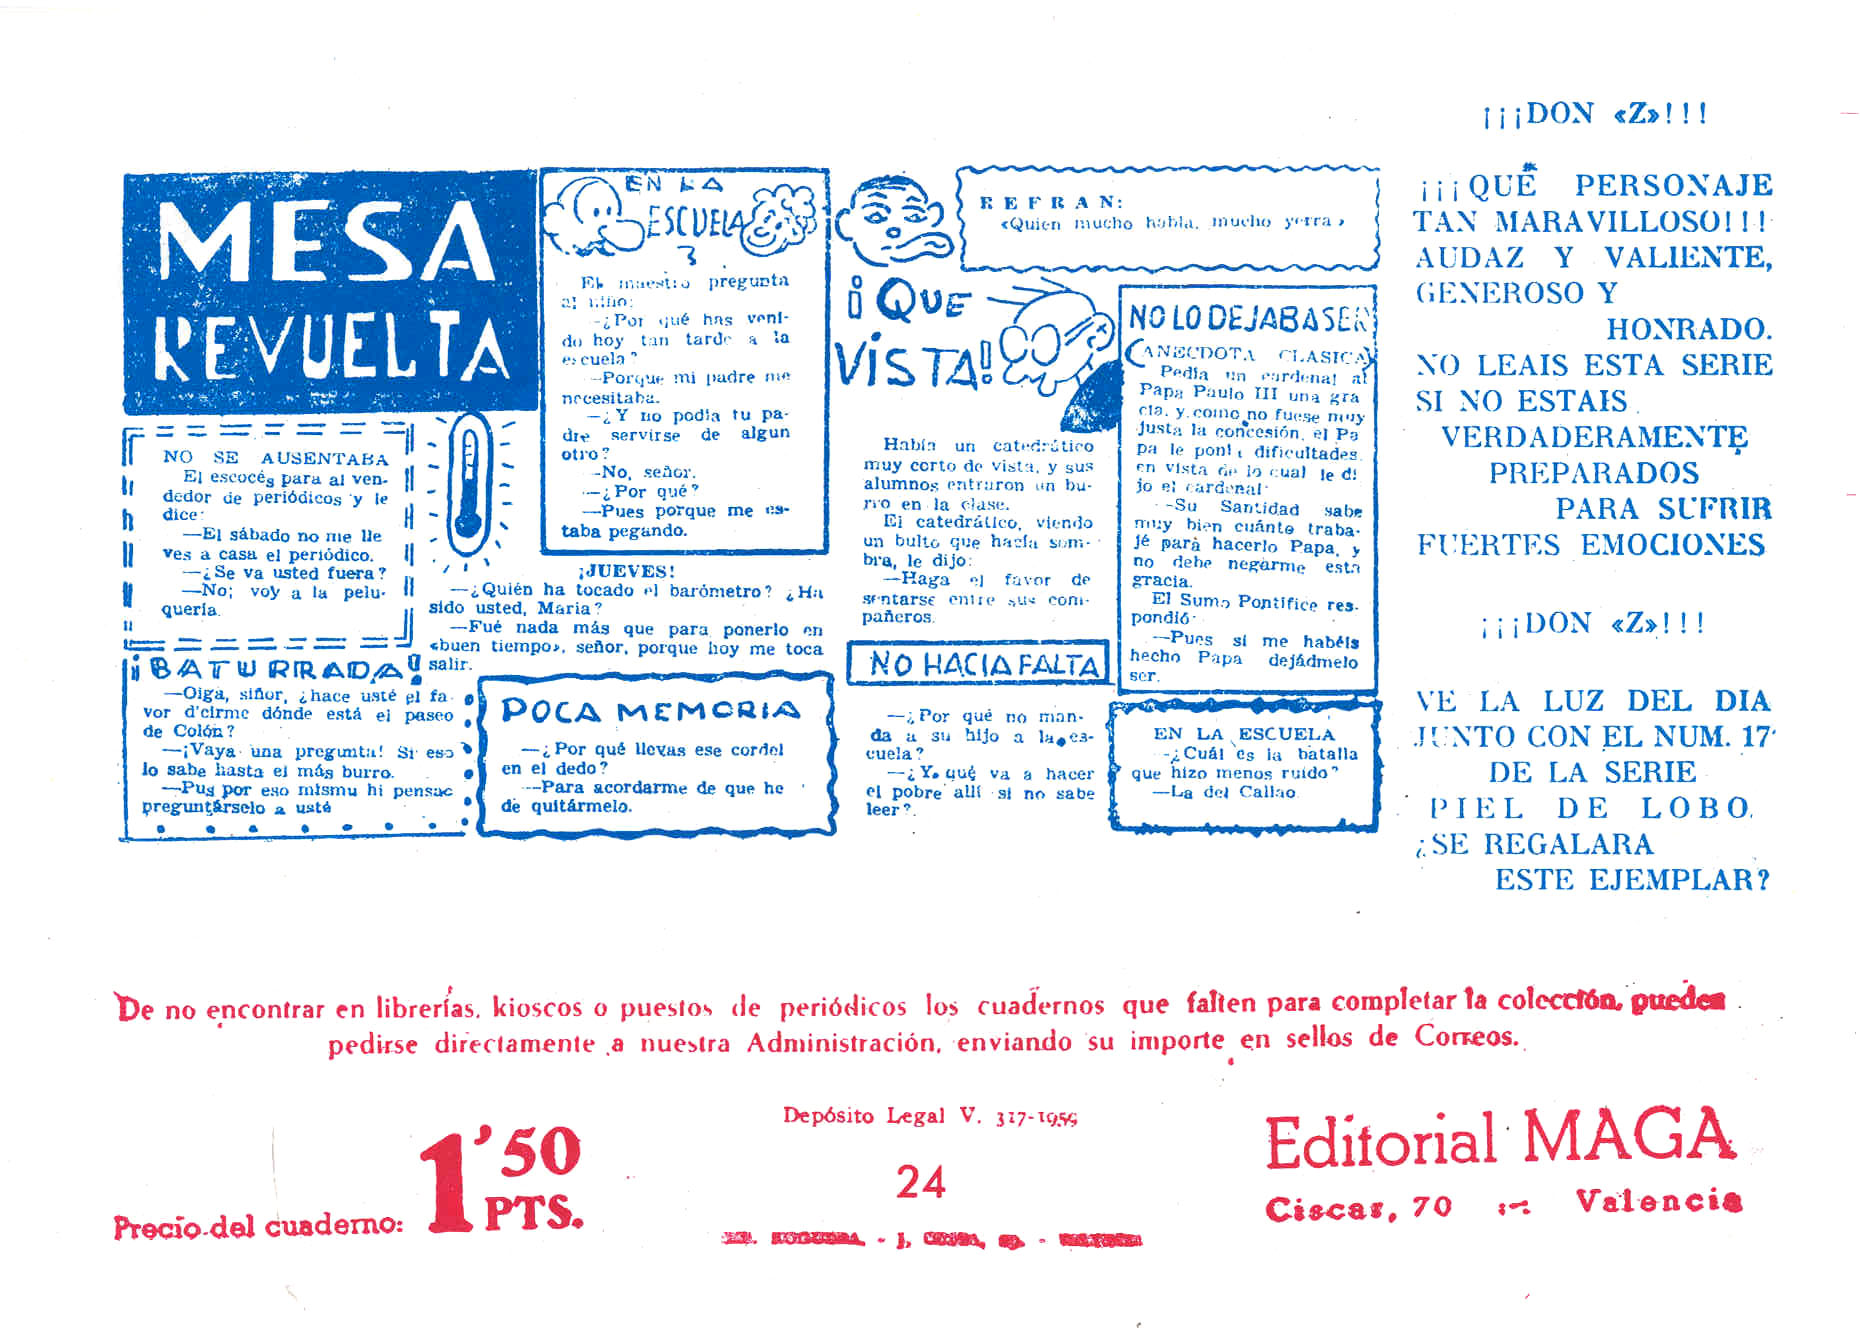 MESA
REVUELTA
NO SE AUSENTABA
El escocés para al ven-
dedor de periódicos y le
dice:
—El sábado no me lle
ves a casa el periódico.
—¿Se va usted fuera?
—No; voy a la pelu-
quería.
¡BATURRADA!
—Oiga, siñor, ¿hace usté el fa-
vor d'cirme dónde está el paseo
de Colón?
—¡Vaya una pregunta! Si eso
lo sabe hasta el más burro.
—Pus por eso mismu hi pensac
preguntárselo a usté
EN LA
ESCUELA
El maestro pregunta
al niño:
—¿Por qué has veni-
do hoy tan tarde a la
escuela?
—Porque mi padre me
necesitaba.
—¿Y no podía tu pa-
dre servirse de algun
otro?
—No, señor.
—¿Por qué?
—Pues porque me es-
taba pegando.
¡JUEVES!
—¿Quién ha tocado el barómetro? ¿Ha
sido usted, Maria?
—Fué nada más que para ponerlo en
«buen tiempo», señor, porque hoy me toca
salir.
POCA MEMORIA
—¿Por qué llevas ese cordel
en el dedo?
—Para acordarme de que he
de quitármelo.
¡QUE
VISTA!
Había un catedrático
muy corto de vista, y sus
alumnos entraron un bu-
rro en la clase.
El catedrático, viendo
un bulto que hacía som-
bra, le dijo:
—Haga el favor de
sentarse entre sus com-
pañeros.
NO HACIA FALTA
—¿Por qué no man-
da a su hijo a la es-
cuela?
—¿Y qué va a hacer
el pobre allí si no sabe
leer?
REFRAN:
«Quien mucho habla, mucho yerra»
NO LO DEJABA SER
(ANECDOTA CLASICA)
Pedía un cardenal al
Papa Paulo III una gra
cia, y como no fuese muy
justa la concesión, el Pa
pa le ponía dificultades,
en vista de lo cual le di
jo el cardenal:
—Su Santidad sabe
muy bien cuánto traba-
jé para hacerlo Papa, y
no debe negarme esta
gracia.
El Sumo Pontifice res-
pondió:
—Pues si me habéis
hecho Papa dejádmelo
ser.
EN LA ESCUELA
—¿Cuál es la batalla
que hizo menos ruido?
—La del Callao.
¡¡¡DON «Z»!!!
¡¡¡QUE PERSONAJE
TAN MARAVILLOSO!!!
AUDAZ Y VALIENTE,
GENEROSO Y
HONRADO.
NO LEAIS ESTA SERIE
SI NO ESTAIS
VERDADERAMENTE
PREPARADOS
PARA SUFRIR
FUERTES EMOCIONES
¡¡¡DON «Z»!!!
VE LA LUZ DEL DIA
JUNTO CON EL NUM. 17
DE LA SERIE
PIEL DE LOBO.
¿SE REGALARA
ESTE EJEMPLAR?
De no encontrar en librerías, kioscos o puestos de periódicos los cuadernos que falten para completar la colección, pueden
pedirse directamente a nuestra Administración, enviando su importe en sellos de Correos.
Precio del cuaderno: 1'50 PTS.
Depósito Legal V. 317-1959
24
Editorial MAGA
Ciscar, 70 :-: Valencia